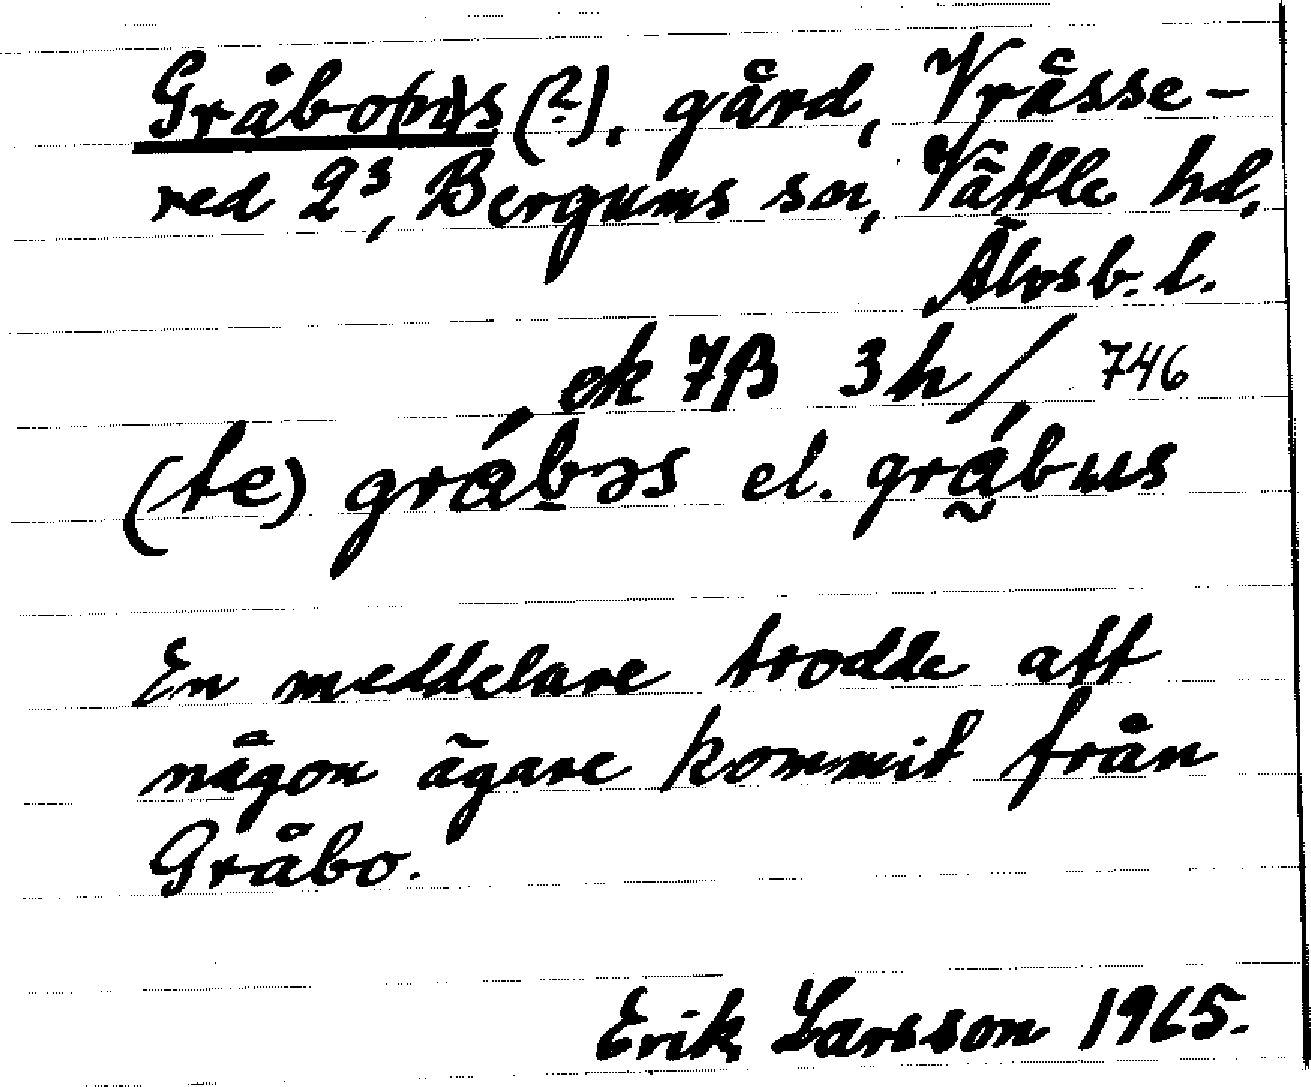 Gråbo(n)s (?), gård, Vråsse-
red 2³, Bergums sn, Vättle hd,
Älvsb. l.
ek 7B 3h/ 746
(te) grábəs el. grábus
En meddelare trodde att
någon ägare kommit från
Gråbo.
Erik Larsson 1965.